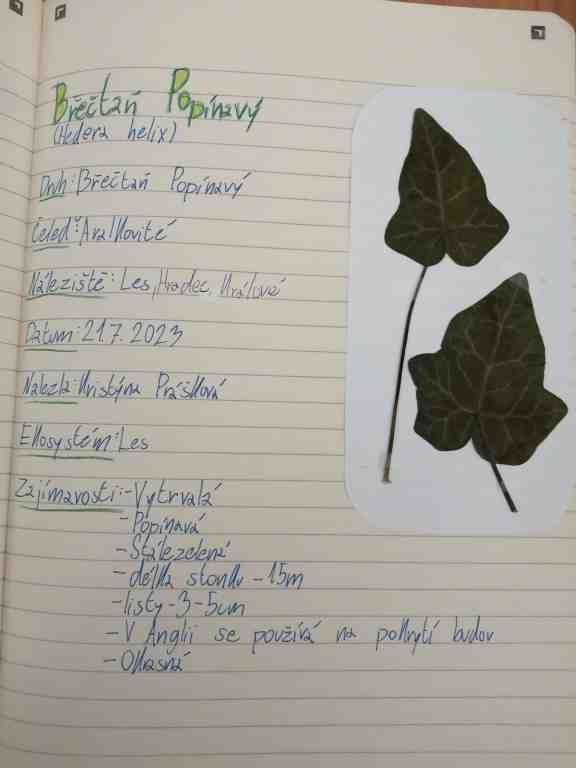 Břečťaň Popínavý
(Hedera helix)
Druh: Břečťaň Popínavý
Čeleď: Aralkovité
Náleziště: Les, Hradec Králové
Datum: 21.7. 2023
Nalezla: Kristýna Prášková
Ekosystém: Les
Zajímavosti: - Vytrvalá
- Popínavá
- Stálezelená
- délka stonku - 15m
- listy - 3 - 5cm
- V Anglii se používá na pokrytí budov
- Okrasná